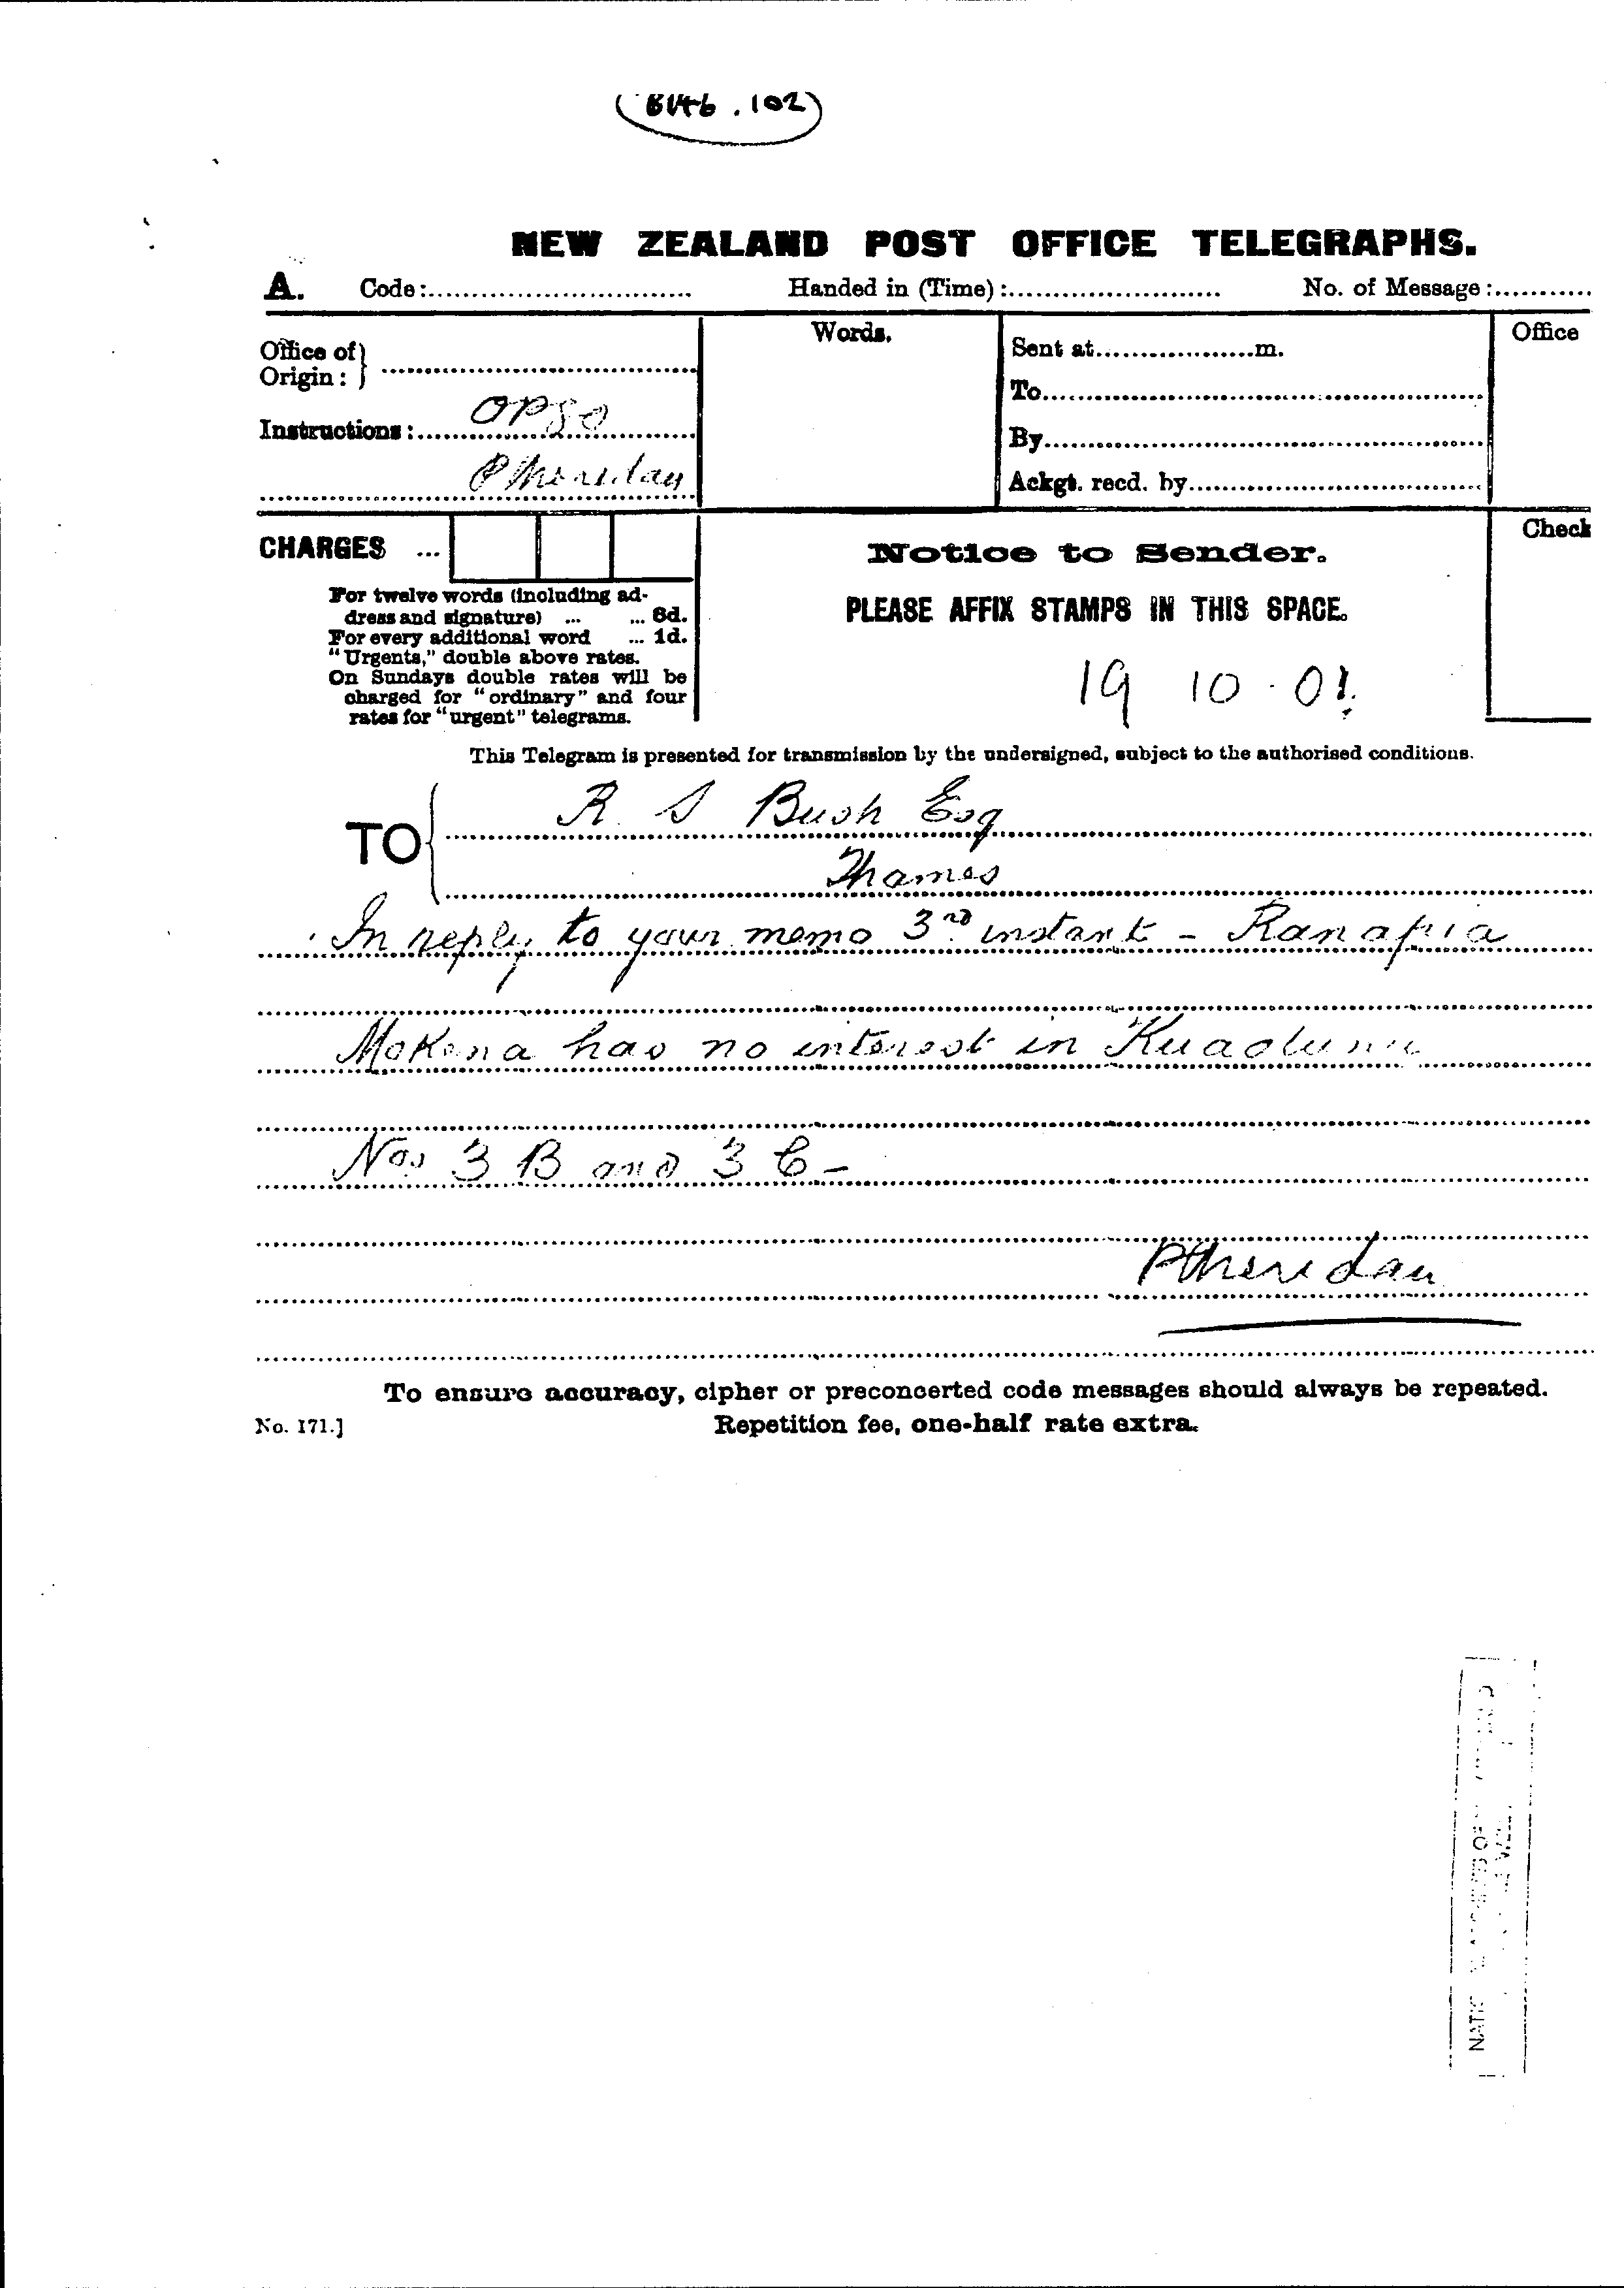 NEW ZEALAND POST OFFICE TELEGRAPHS.
A. Code:.............................. Handed in (Time):........................ No. of Message:...........
Words.
Office
Office of
Origin:
Sent at..................m.
To
Instructions:
By
Ackgt. recd. by
CHARGES ...
Check
Notice to Sender.
For twelve words (including ad-
dress and signature) ... ... 6d.
For every additional word ... 1d.
"Urgents," double above rates.
On Sundays double rates will be
charged for "ordinary" and four
rates for "urgent" telegrams.
PLEASE AFFIX STAMPS IN THIS SPACE.
19 10 . 01.
This Telegram is presented for transmission by the undersigned, subject to the authorised conditions.
TO
R. S Bush Esq
Thames
In reply to your memo 3rd instant - Ranapia
Mokena has no interest in
Nos 3 B and 3 C -
PSheridan
To ensure accuracy, cipher or preconcerted code messages should always be repeated.
No. 171.] Repetition fee, one-half rate extra.